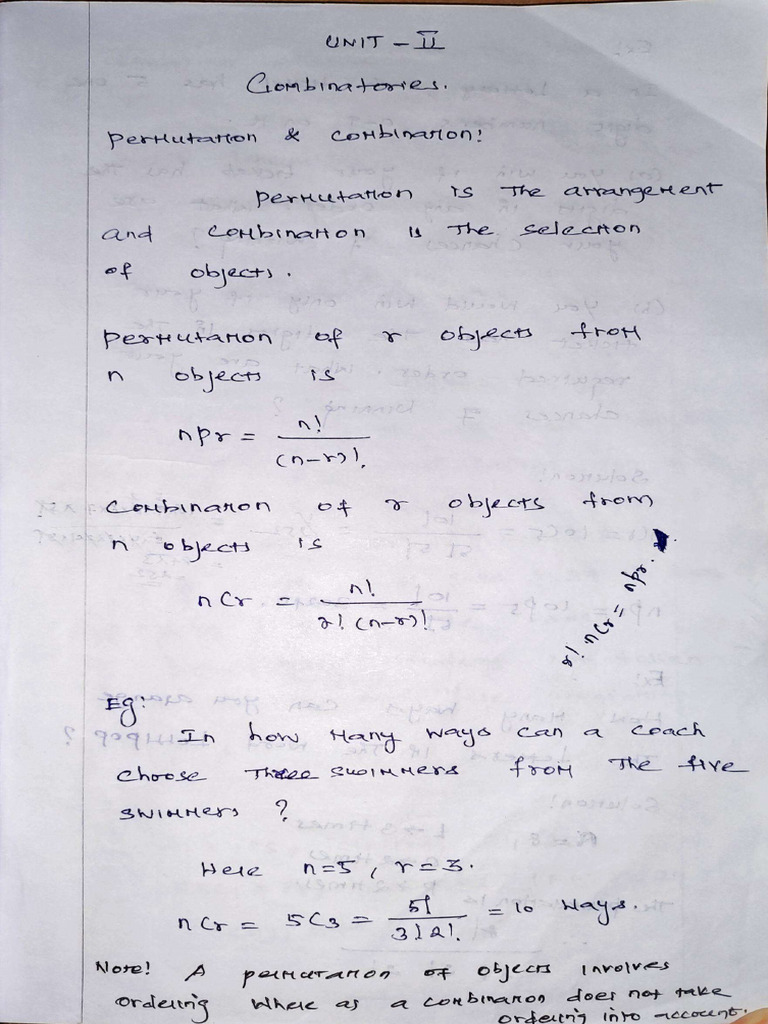 UNIT - II
Combinatories.
Permutation & combination:
permutation is The arrangement
and combination is The selection
of objects.
permutation of r objects from
n objects is
nPr = n! / (n-r)!.
combination of r objects from
n objects is
nCr = n! / r! (n-r)!
r! nCr = nPr.
Eg:
In how many ways can a coach
choose Three swimmers from The five
swimmers ?
Here n=5, r=3.
nCr = 5C3 = 5! / 3! 2!. = 10 ways.
Note: A permutation of objects involves
ordering where as a combination does not take
ordering into account.